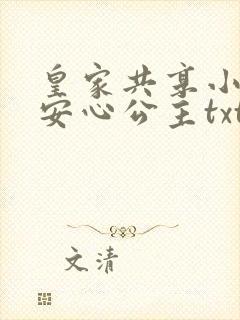 皇家共享小
安心公主txt
文清